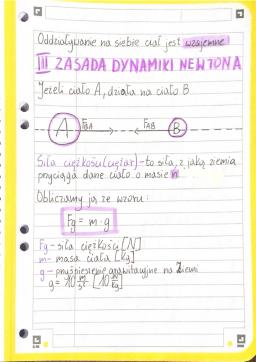 Oddziaływanie na siebie ciał jest wzajemne
III ZASADA DYNAMIKI NEWTONA
Jeżeli ciało A, działa na ciało B
A FBA FAB B
Siła ciężkości (ciężar) - to siła, z jaką ziemia
przyciąga dane ciało o masie m
Obliczamy ją ze wzoru:
Fg = m · g
Fg - siła ciężkości [N]
m - masa ciała [kg]
g - przyśpieszenie grawitacyjne na Ziemi
g = 10 m/s² [10 N/kg]